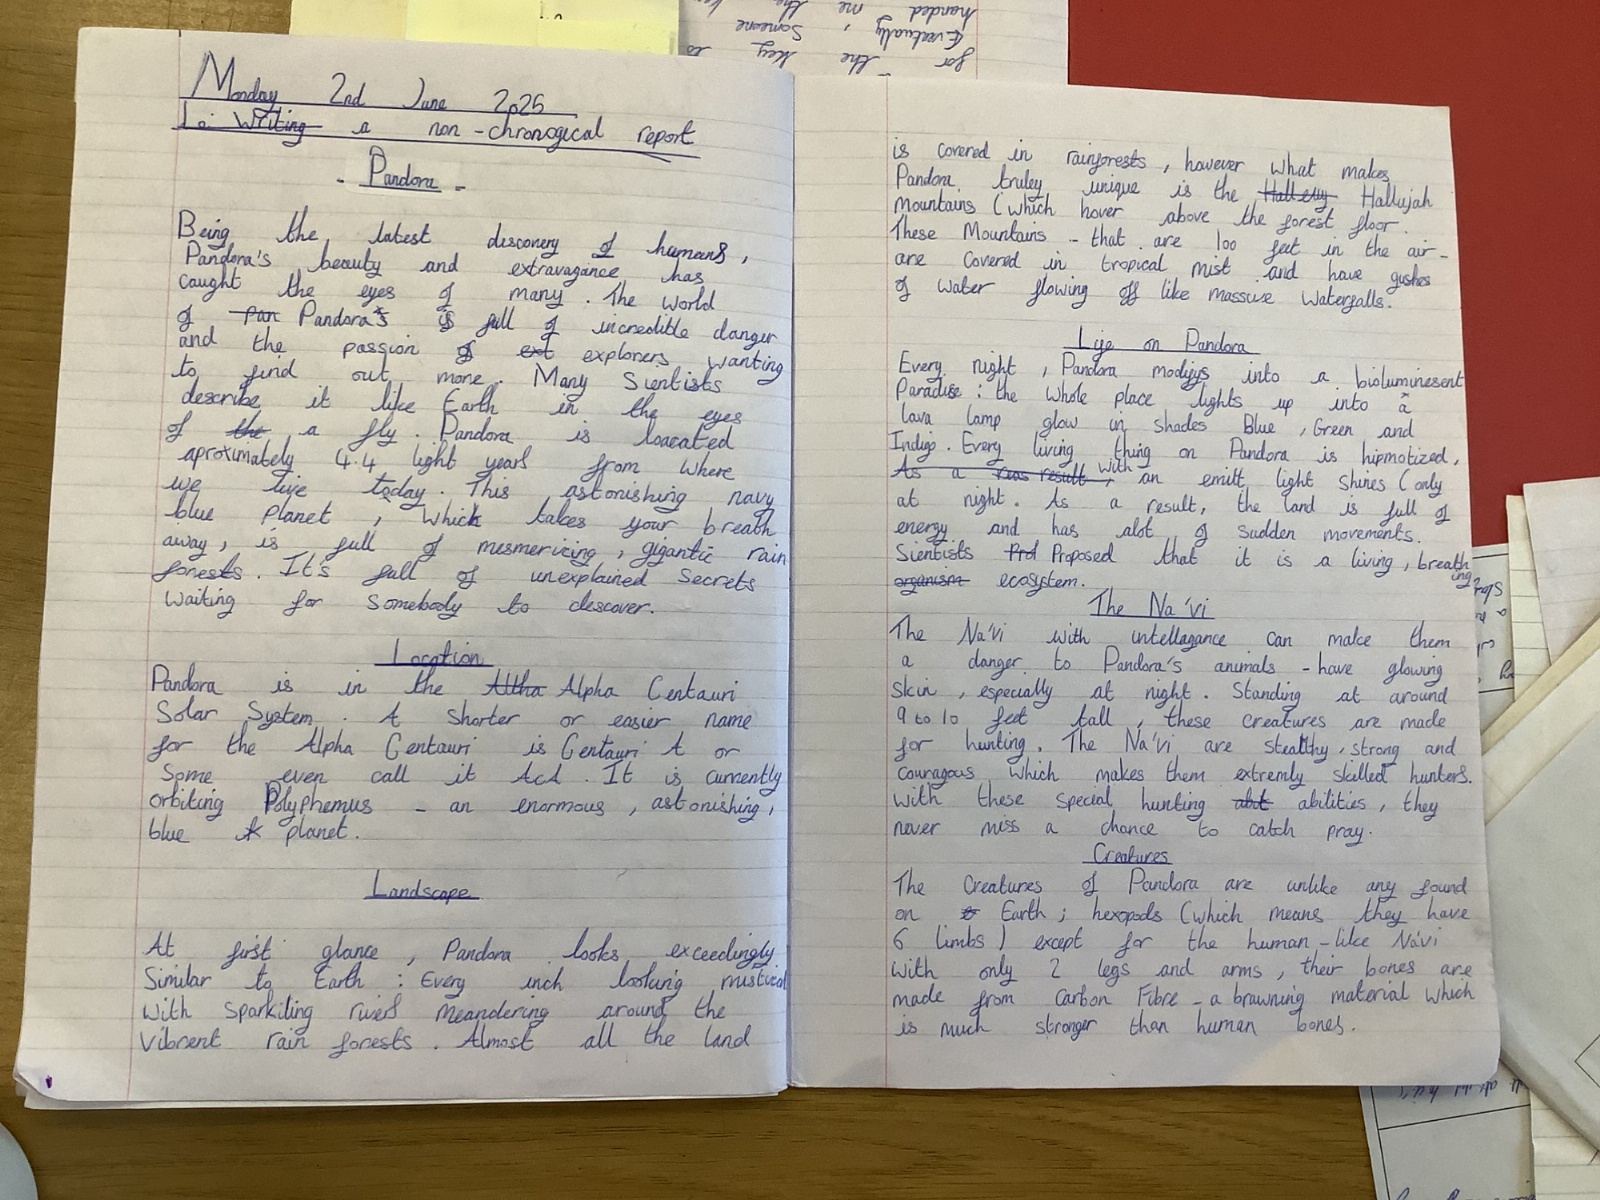 Monday 2nd June 2025
Lo: Writing a non-chronogical report
- Pandora -
Being the latest disconery of humans,
Pandora's beauty and extravagance has
caught the eyes of many. The world
of Pandora's is full of incredible danger
and the passion of explorers wanting
to find out more. Many Sientists
describe it like Earth in the eyes
of a fly. Pandora is loacated
aproximately 4.4 light years from where
we live today. This astonishing navy
blue planet, which takes your breath
away, is full of mesmerizing, gigantic rain
forests. It's full of unexplained secrets
waiting for somebody to descover.
Location
Pandora is in the Alpha Centauri
Solar System. A shorter or easier name
for the Alpha Centauri is Centauri A or
Some even call it AcA. It is currently
orbiting Polyphemus - an enormous, astonishing,
blue planet.
Landscape
At first glance, Pandora looks exceedingly
Similar to Earth: Every inch looking mistical
with sparkiling rivers meandering around the
Vibrent rain forests. Almost all the land
for the key is
Evectually, someone
handed me the
is covered in rainforests, however what makes
Pandora truley unique is the Hallujah
Mountains (which hover above the forest floor.
These Mountains - that are 100 feet in the air -
are covered in tropical mist and have gushes
of water flowing off like massive waterfalls.
Life on Pandora
Every night, Pandora modifys into a bioluminesent
Paradise: the whole place lights up into a
lava lamp glow in shades Blue, Green and
Indigo. Every living thing on Pandora is hipmotized,
with an emitt light shines (only
at night. As a result, the land is full of
energy and has alot of sudden movements.
Sientists Proposed that it is a living, breathing
ecosystem.
The Na'vi
The Na'vi with intellagance can make them
a danger to Pandora's animals - have glowing
skin, especially at night. Standing at around
9 to 10 feet tall, these creatures are made
for hunting. The Na'vi are stealthy, strong and
couragous which makes them extremly skilled hunters.
With these special hunting abilities, they
never miss a chance to catch pray.
Creatures
The Creatures of Pandora are unlike any found
on Earth; hexopods (which means they have
6 limbs) except for the human-like Na'vi
with only 2 legs and arms, their bones are
made from Carbon Fibre - a brawning material which
is much stronger than human bones.